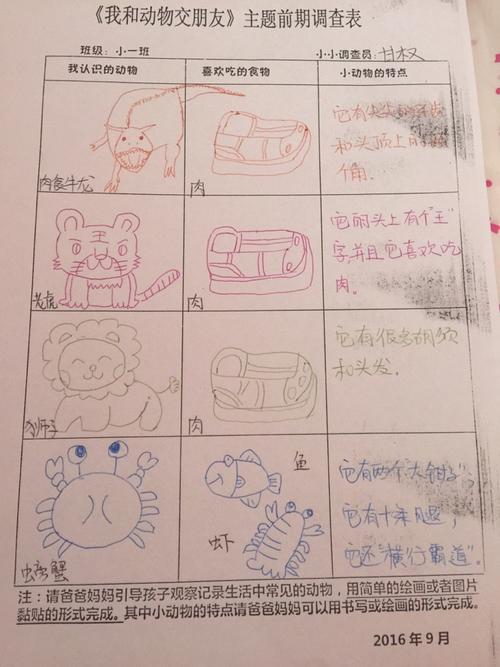 《我和动物交朋友》主题前期调查表
班级：小一班 小小调查员：甘权
我认识的动物 喜欢吃的食物 小动物的特点
肉食牛龙 肉 它有尖尖的牙齿
和头顶上的
角.
老虎 肉 它的头上有个"王"
字并且它喜欢吃
肉。
狮子 肉 它有很多胡须
和头发.
螃蟹 鱼
虾
它有两个"大钳子",
它有十条腿,
它还"横行霸道"。
注：请爸爸妈妈引导孩子观察记录生活中常见的动物，用简单的绘画或者图片
黏贴的形式完成。其中小动物的特点请爸爸妈妈可以用书写或绘画的形式完成。
2016年9月